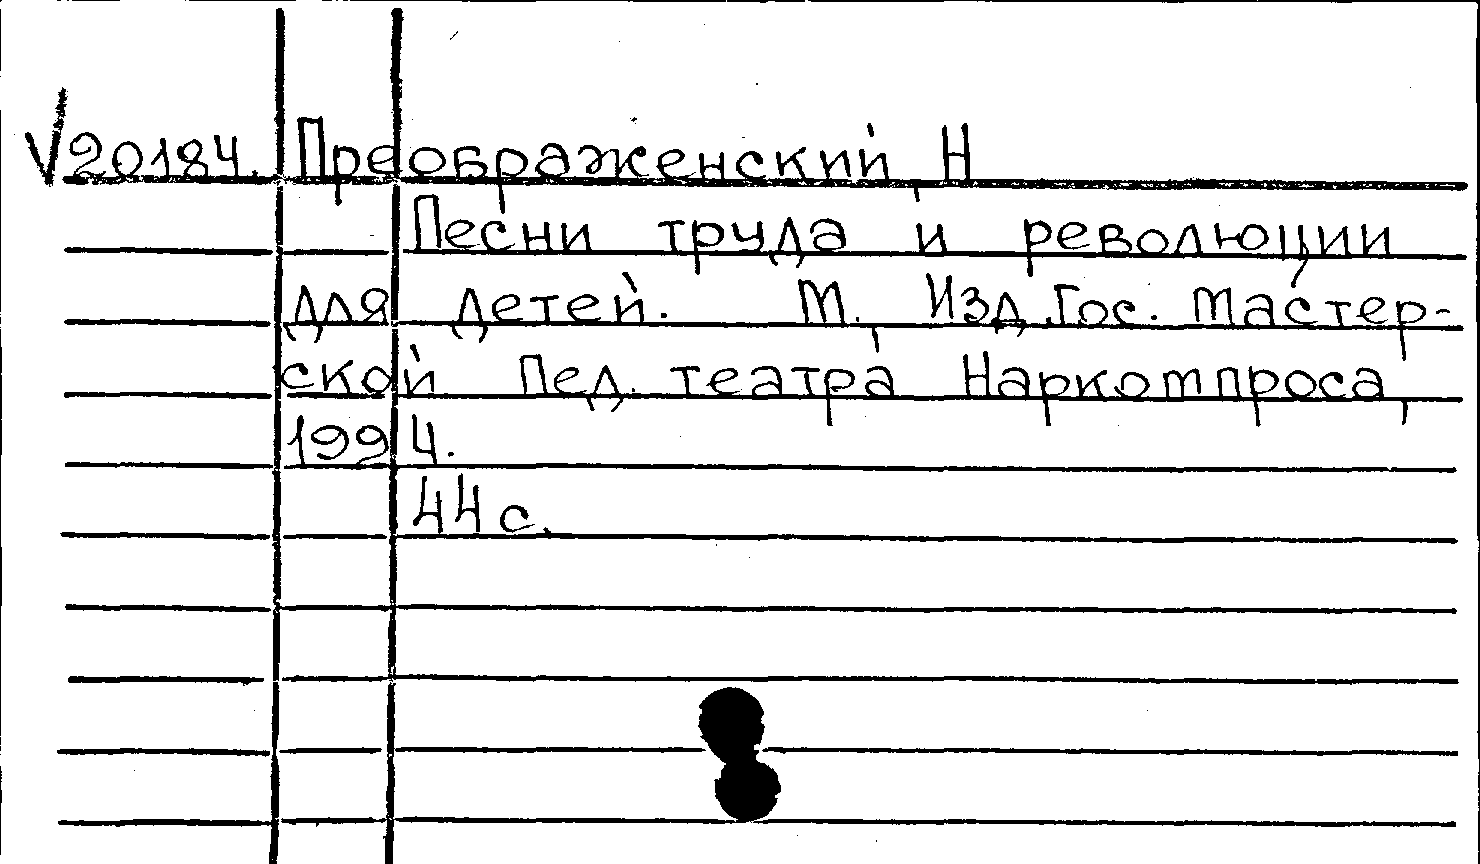 V20184. Преображенский, Н
Песни труда и революции
для детей. М., Изд. Гос. Мастер-
ской Пед. театра Наркомпроса,
1994.
44 с.